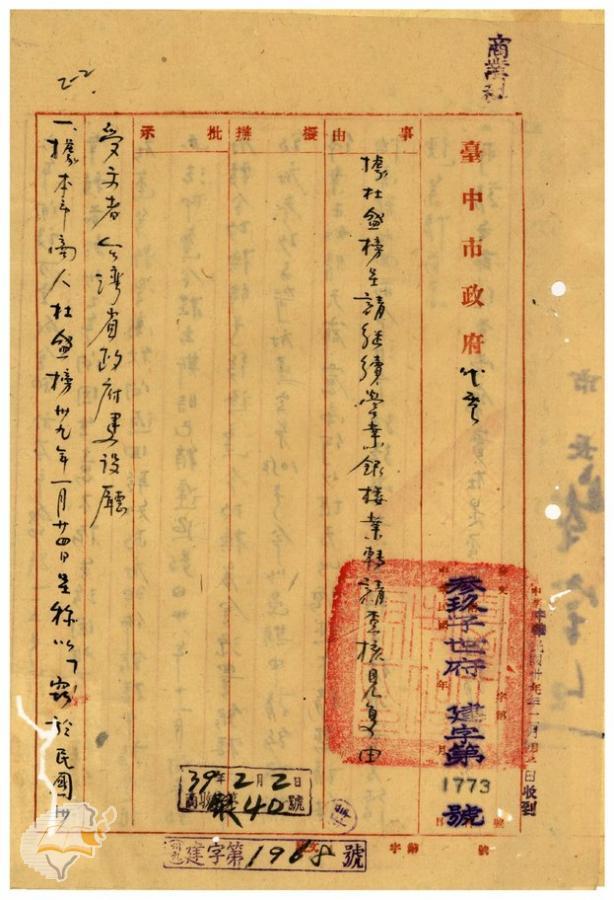 商業科
臺中市政府 代電
事由
據杜盤榜呈請繼續營業銀樓業轉請查核見復由
擬辦
批示
受文者 台灣省政府建設廳
一、據本市商人杜盤榜卅九年一月廿四日呈稱以「竊於民國卅
叁玖子世府建字第
1773
號
39年2月2日
商收 第40號
建字第1968號
日收到
市長
2-2